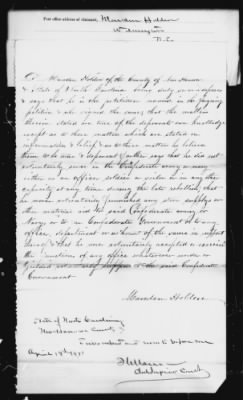 Post office address of claimant, Marsden Holden
Wilmington
N.C.
I, Marsden Holden of the County of New Hanover
& State of North Carolina being duly sworn deposes
& says that he is the petitioner named in the foregoing
petition & who signed the same, that the matters
therein stated are true of the deponent's own knowledge
except as to those matters which are stated on
information & belief & as to those matters he believes
them to be true & deponent further says that he did not
voluntarily serve in the Confederate army or navy
either as an officer, soldier or sailor or in any other
capacity at any time during the late rebellion, that he
never voluntarily furnished any stores supplies or
other material aid to said Confederate army or
Navy or to the Confederate Government or to any
officer, department or adherent of the same in support
thereof & that he never voluntarily accepted or exercised
the functions of any office whatsoever under or
yielded support to the said Confederate
Government
Marsden Holden
State of North Carolina
New Hanover County
Subscribed and sworn to before me
April 1871
Court